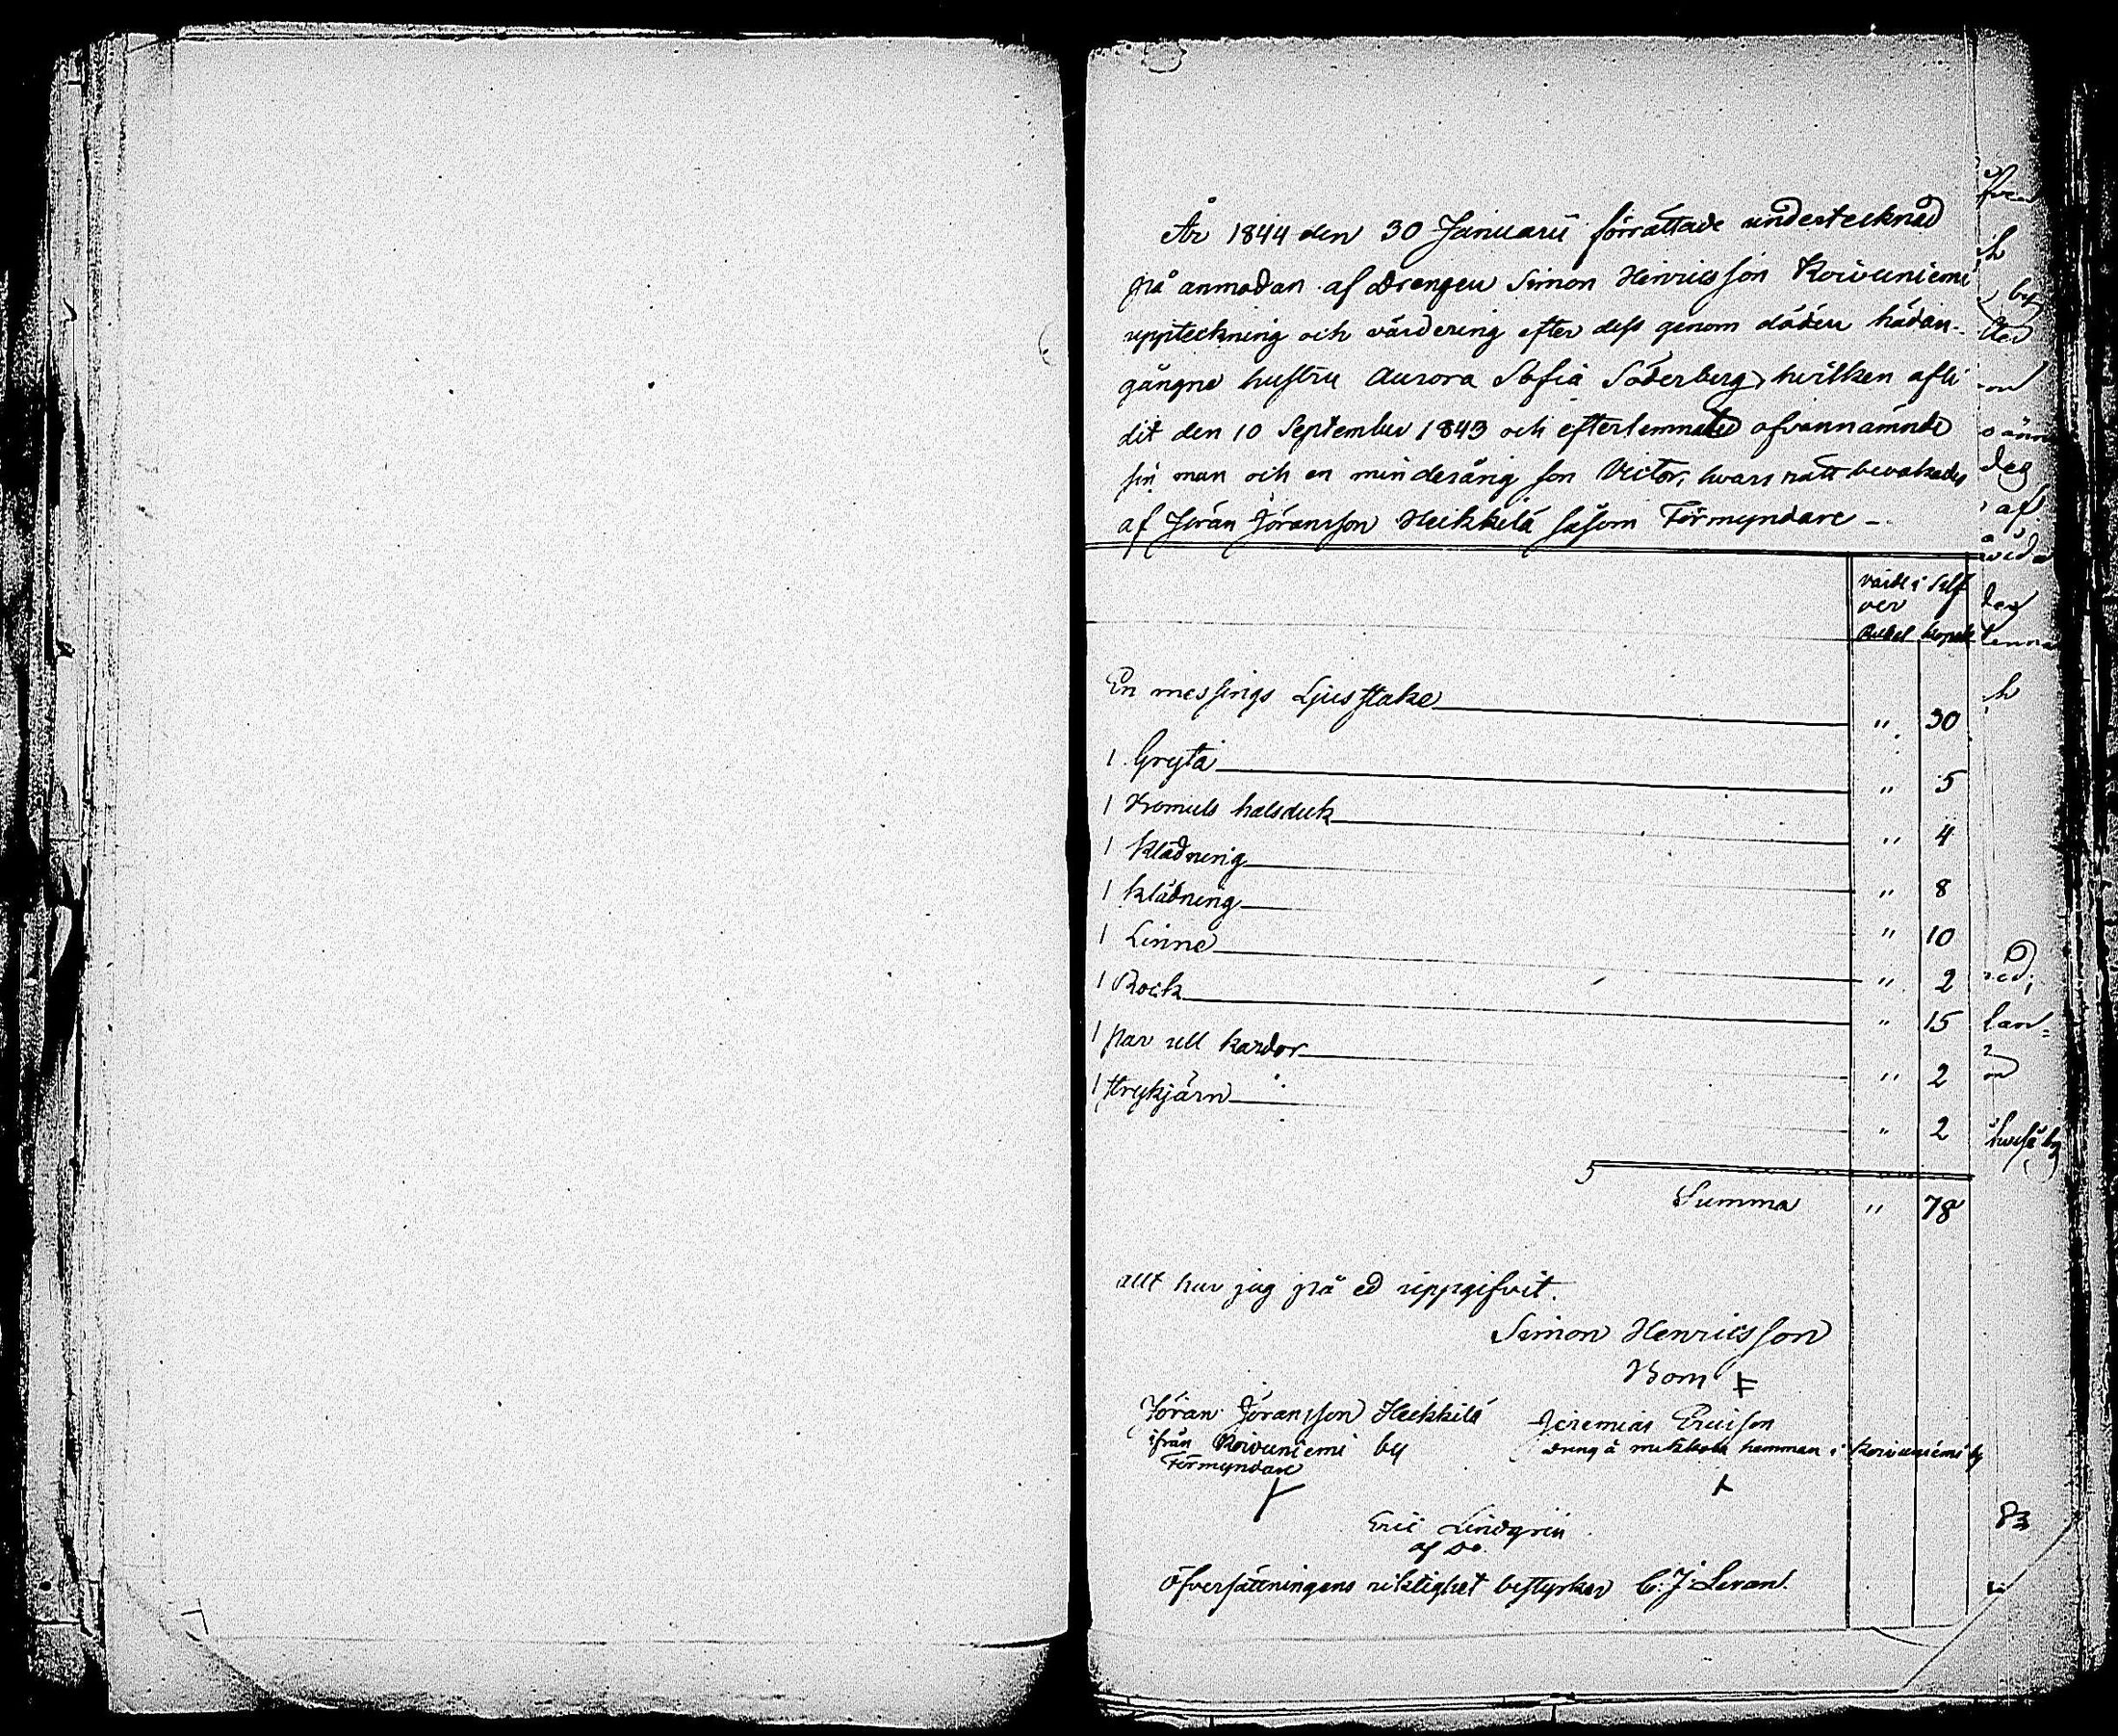 År 1844 den 30 Januarii förrättade undertecknad
på anmodan af drengen Simon Hinricsson Koivuniemi
uppteckning och värdering efter dess genom döden hädan-
gångne hustru Aurora Sofia Söderberg, hvilken afli
dit den 10 September 1843 och efterlemnade ofvannämnde
sin man och en minderårig son Victor, hvars rätt bevakades
af Jöran Jöransson Heikkilä såsom Förmyndare —
värde i Silf
ver
Rubel kopek
En messings Ljusstake " 30
1 Gryta " 5
1 Bomuls halsduk " 4
1 Klädning " 8
1 klädning " 10
1 Linne " 2
1 Rock " 15
1 par ull kardor " 2
1 strykjärn " 2
Summa " 78
Allt har jag på ed uppgifvit.
Simon Henricsson
Bom
Jöran Jöransson Heikkilä
ifrån Koivuniemi by
Förmyndare
Jeremias Ericson
dreng å hemman i Koivuniemi by
Eric Lindgrén
Öfversättningens riktighet bestyrker C: J: Levan.
83